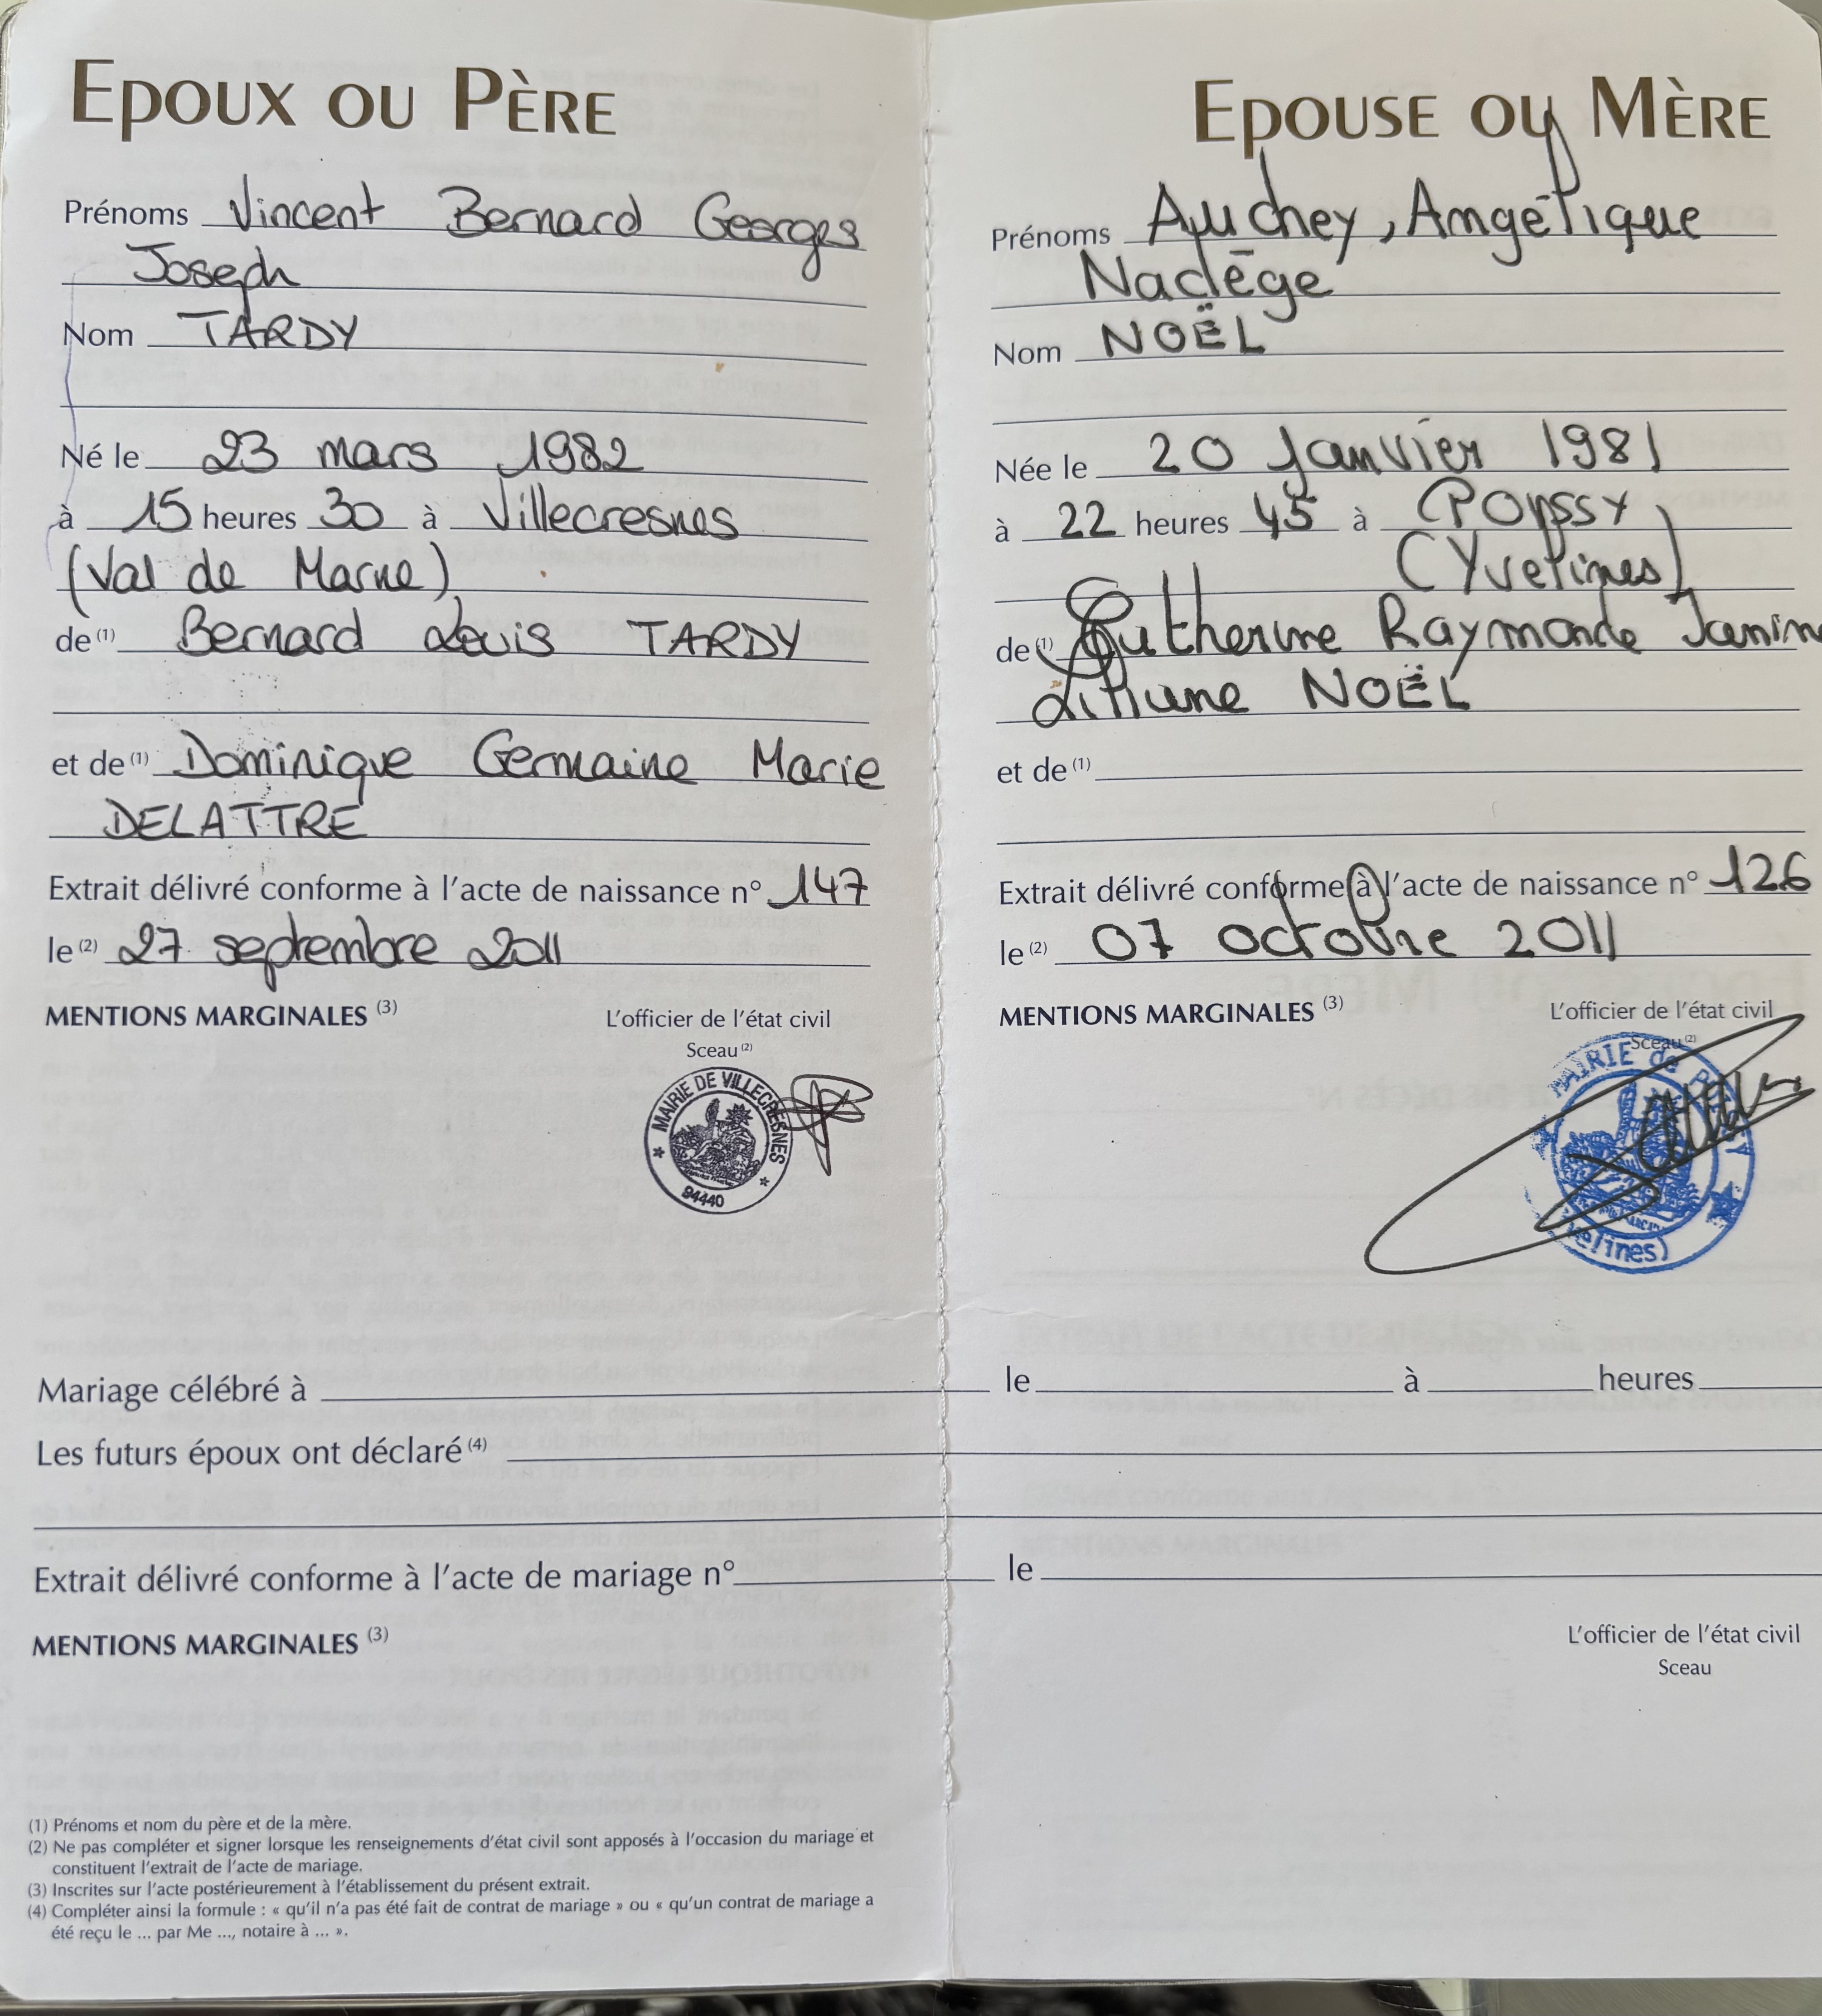 EPOUX OU PÈRE
Prénoms Vincent Bernard Georges
Joseph
Nom TARDY
Né le 23 mars 1982
à 15 heures 30 à Villecresnes
(Val de Marne)
de (1) Bernard Louis TARDY
et de (1) Dominique Germaine Marie
DELATTRE
Extrait délivré conforme à l'acte de naissance n° 147
le (2) 27 septembre 2011
MENTIONS MARGINALES (3)
L'officier de l'état civil
Sceau (2)
MAIRIE DE VILLECRESNES
94440
EPOUSE OU MÈRE
Prénoms Auchey, Angélique
Nadège
Nom NOËL
Née le 20 Janvier 1981
à 22 heures 45 à POISSY
(Yvelines)
de (1) Catherine Raymonde Janine
Liliane NOËL
et de (1)
Extrait délivré conforme à l'acte de naissance n° 126
le (2) 07 octobre 2011
MENTIONS MARGINALES (3)
L'officier de l'état civil
Sceau (2)
MAIRIE de
Mariage célébré à le à heures
Les futurs époux ont déclaré (4)
Extrait délivré conforme à l'acte de mariage n° le
MENTIONS MARGINALES (3)
L'officier de l'état civil
Sceau
(1) Prénoms et nom du père et de la mère.
(2) Ne pas compléter et signer lorsque les renseignements d'état civil sont apposés à l'occasion du mariage et
constituent l'extrait de l'acte de mariage.
(3) Inscrites sur l'acte postérieurement à l'établissement du présent extrait.
(4) Compléter ainsi la formule : « qu'il n'a pas été fait de contrat de mariage » ou « qu'un contrat de mariage a
été reçu le ... par Me ..., notaire à ... ».